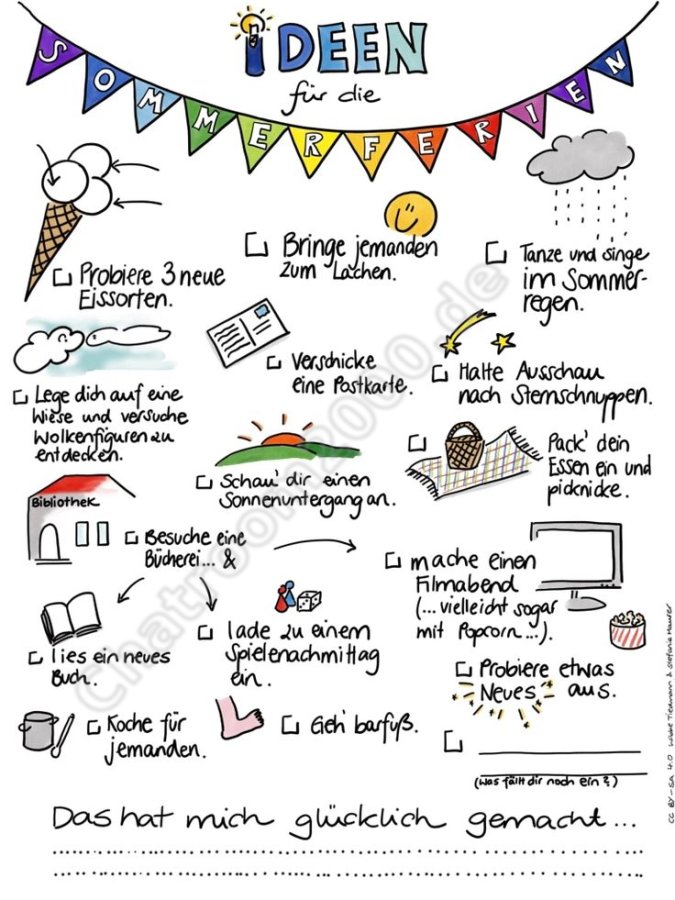 iDEEN
für die
SOMMERFERIEN
Probiere 3 neue
Eissorten.
Bringe jemanden
zum Lachen.
Tanze und singe
im Sommer-
regen.
Lege dich auf eine
Wiese und versuche
Wolkenfiguren zu
entdecken.
Verschicke
eine Postkarte.
Halte Ausschau
nach Sternschnuppen.
Schau' dir einen
Sonnenuntergang an.
Pack' dein
Essen ein und
picknicke.
Bibliothek
Besuche eine
Bücherei... &
mache einen
Filmabend
(... vielleicht sogar
mit Popcorn...).
lies ein neues
Buch.
lade zu einem
Spielenachmittag
ein.
Probiere etwas
Neues aus.
Koche für
jemanden.
Geh' barfuß.
(Was fällt dir noch ein?)
Das hat mich glücklich gemacht...
CC BY-SA 4.0 Wibke Tiedmann & Stefanie Maurer
Chatroom2000.de